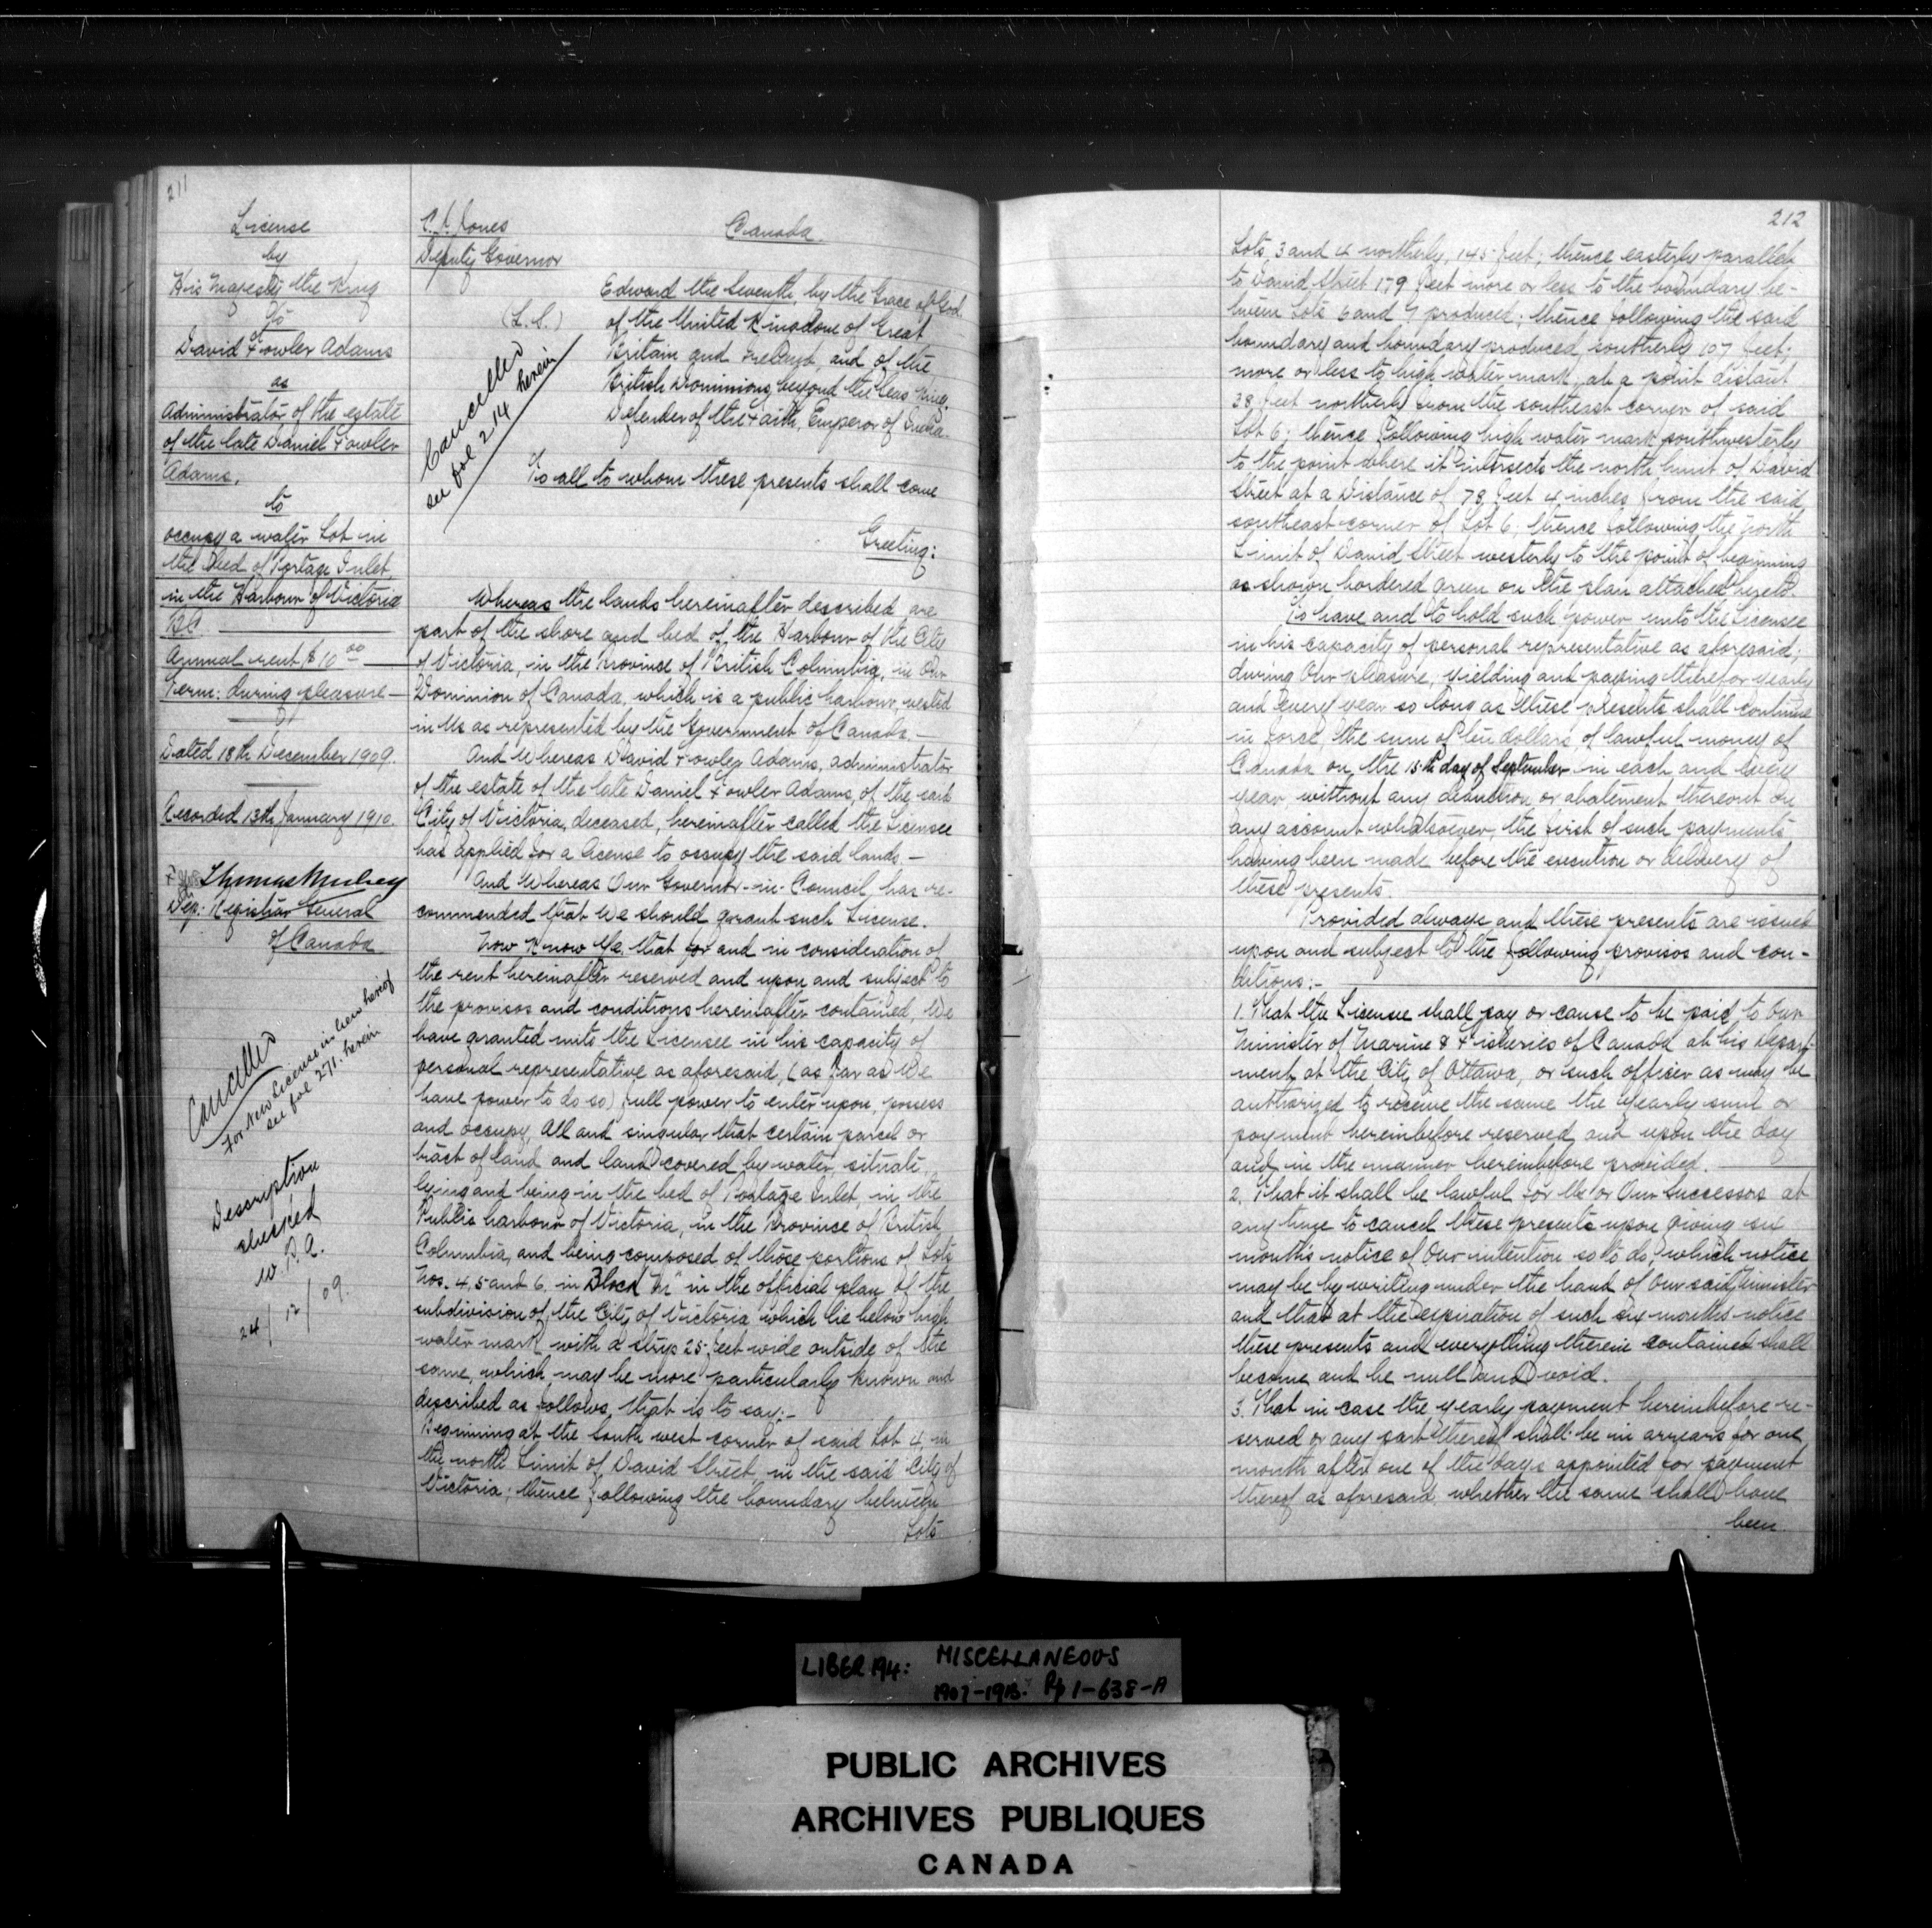 211
License
by
His Majesty the King
to
David Fowler Adams
as
Administrator of the estate
of the late Daniel Fowler
Adams,
to
occupy a water Lot in
the bed of Portage Inlet,
in the Harbour of Victoria
B.C.
Annual rent $10.00
Term: during pleasure
Dated 18th December 1909.
Recorded 13th January 1910.
Thomas Mulvey
Dep: Registrar General
of Canada
Cancelled
For New License in lieu hereof
see fol 271. herein
Description
checked
W.P.A.
24/12/09.
Deputy Governor
Canada.
(L.S.)
Cancelled
see fol 214 herein
Edward the Seventh, by the Grace of God
of the United Kingdom of Great
Britain and Ireland, and of the
British Dominions beyond the Seas King,
Defender of the Faith, Emperor of India.
To all to whom these presents shall come
Greeting:
Whereas the lands hereinafter described are
part of the shore and bed of the Harbour of the City
of Victoria, in the Province of British Columbia, in Our
Dominion of Canada, which is a public harbour, vested
in Us as represented by the Government of Canada.—
And Whereas David Fowler Adams, administrator
of the estate of the late Daniel Fowler Adams, of the said
City of Victoria, deceased, hereinafter called the Licensee
has applied for a license to occupy the said lands.—
And Whereas Our Governor-in-Council has re-
commended that We should grant such License.
Now Know Ye that for and in consideration of
the rent hereinafter reserved and upon and subject to
the provisos and conditions hereinafter contained, We
have granted unto the Licensee in his capacity of
personal representative as aforesaid, (as far as We
have power to do so) full power to enter upon, possess
and occupy, All and singular that certain parcel or
tract of land and land covered by water, situate,
lying and being in the bed of Portage Inlet, in the
Public harbour of Victoria, in the Province of British
Columbia, and being composed of those portions of Lots
Nos. 4, 5 and 6, in Block in the official plan of the
subdivision of the City of Victoria which lie below high
water mark with a strip 25 feet wide outside of the
same, which may be more particularly known and
described as follows, that is to say:-
Beginning at the South west corner of said Lot 4, in
the north limit of David Street, in the said City of
Victoria; thence following the boundary between
Lots
212
Lots 3 and 4 northerly, 145 feet; thence easterly parallel
to David Street 179 feet more or less to the boundary be-
tween Lots 6 and 7 produced; thence following the said
boundary and boundary produced southerly 107 feet,
more or less to high water mark, at a point distant
38 feet northerly from the southeast corner of said
Lot 6; thence following high water mark southwesterly
to the point where it intersects the north limit of David
Street at a Distance of 78 feet 4 inches from the said
southeast corner of Lot 6; thence following the north
Limit of David Street westerly to the point of beginning
as shown bordered green on the plan attached hereto.
To have and to hold such power unto the Licensee
in his capacity of personal representative as aforesaid;
during Our pleasure, yielding and paying therefor yearly
and every year so long as these presents shall continue
in force, the sum of ten dollars of lawful money of
Canada on the 15th day of September in each and every
year, without any deduction or abatement thereout on
any account whatsoever, the first of such payments
having been made before the execution or delivery of
these presents.
Provided always and these presents are issued
upon and subject to the following provisos and con-
ditions:-
1. That the Licensee shall pay or cause to be paid to Our
Minister of Marine & Fisheries of Canada at his Depart-
ment at the City of Ottawa, or such officer as may be
authorized to receive the same the yearly sum or
payment hereinbefore reserved and upon the day
and in the manner hereinbefore provided.
2. That it shall be lawful for Us or Our Successors at
any time to cancel these presents upon giving six
months notice of Our intention so to do, which notice
may be by writing under the hand of Our said Minister
and that at the expiration of such six months notice
these presents and everything therein contained shall
become and be null and void.
3. That in case the yearly payment hereinbefore re-
served or any part thereof shall be in arrears for one
month after one of the days appointed for payment
thereof as aforesaid, whether the same shall have
been
LIBER 194: MISCELLANEOUS
1907-1913. Pp 1-638-A
PUBLIC ARCHIVES
ARCHIVES PUBLIQUES
CANADA